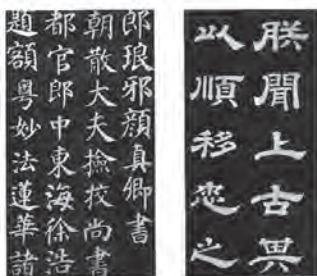 郎琅邪顏真卿書
朝散大夫撿挍尚書
都官郎中東海徐浩
題額粵妙法蓮華諸
朕聞上古其
以順移忠之